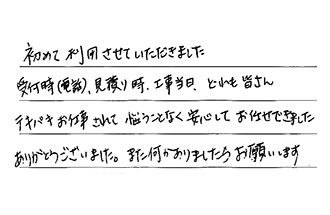 初めて利用させていただきました
受付時(電話)、見積り時、工事当日、どれも皆さん
テキパキお仕事されて悩うことなく安心してお任せできました
ありがとうございました。また何かありましたらお願いします